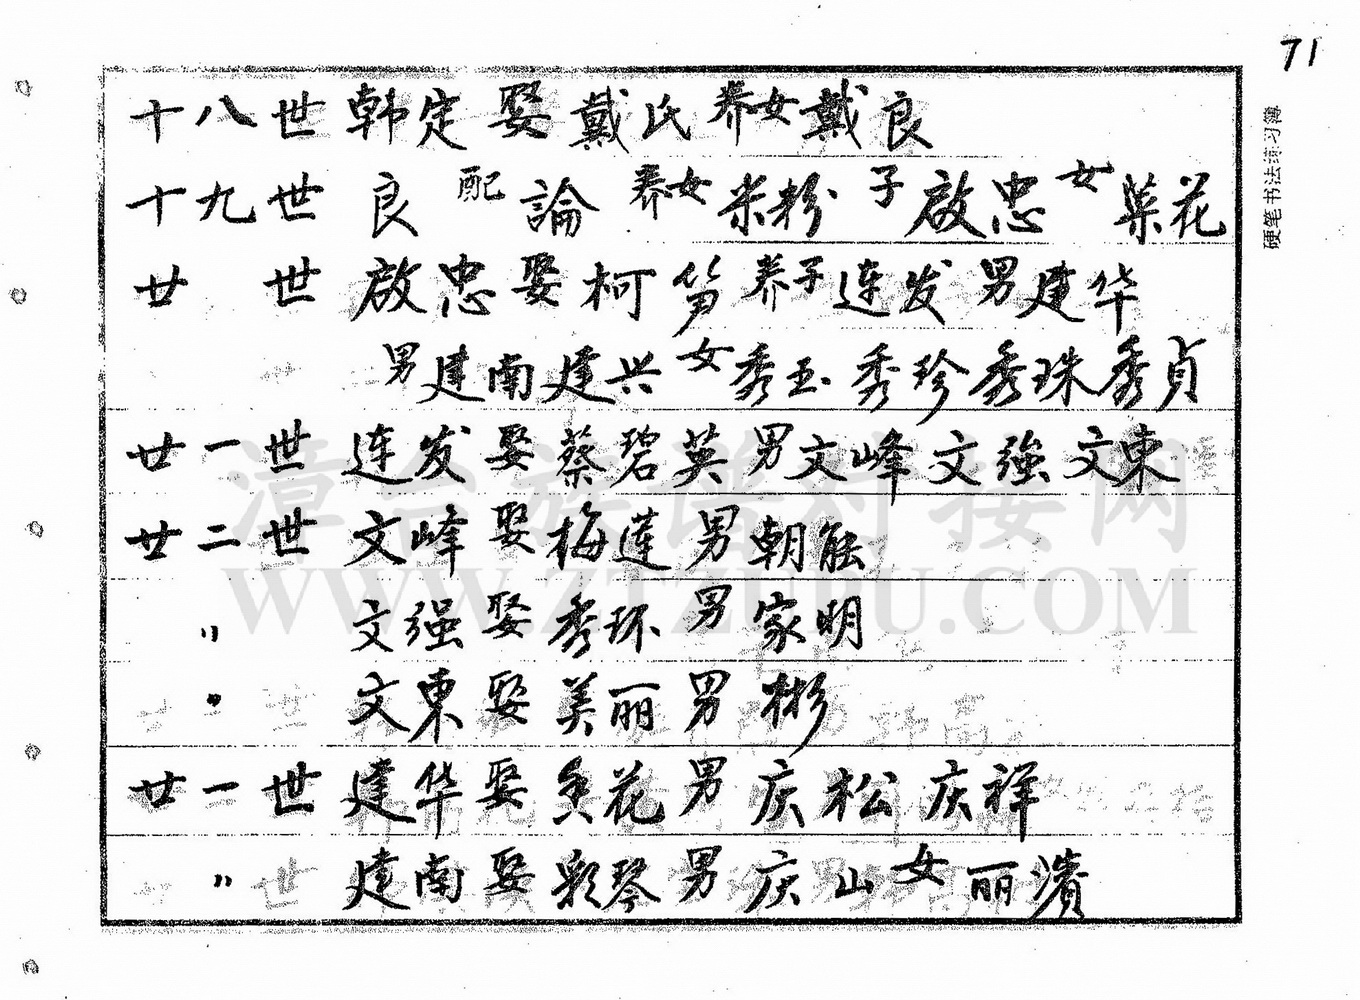 71
硬笔书法练习簿
十八世 韩定 娶 戴氏 养女 戴良
十九世 良 配 論 养女 米粉 子 啟忠 女 菜花
廿世 啟忠 娶 柯笋 养子 连发 男 建华
男 建南 建兴 女 秀玉 秀珍 秀珠 秀贞
廿一世 连发 娶 蔡碧英 男 文峰 文強 文東
廿二世 文峰 娶 梅莲 男 朝能
〃 文强 娶 秀环 男 家明
〃 文東 娶 美丽 男 彬
廿一世 建华 娶 花 男 庆松 庆祥
〃 建南 娶 彩琴 男 庆山 女 丽濱
漳台族谱对接网
WWW.ZTZUPU.COM